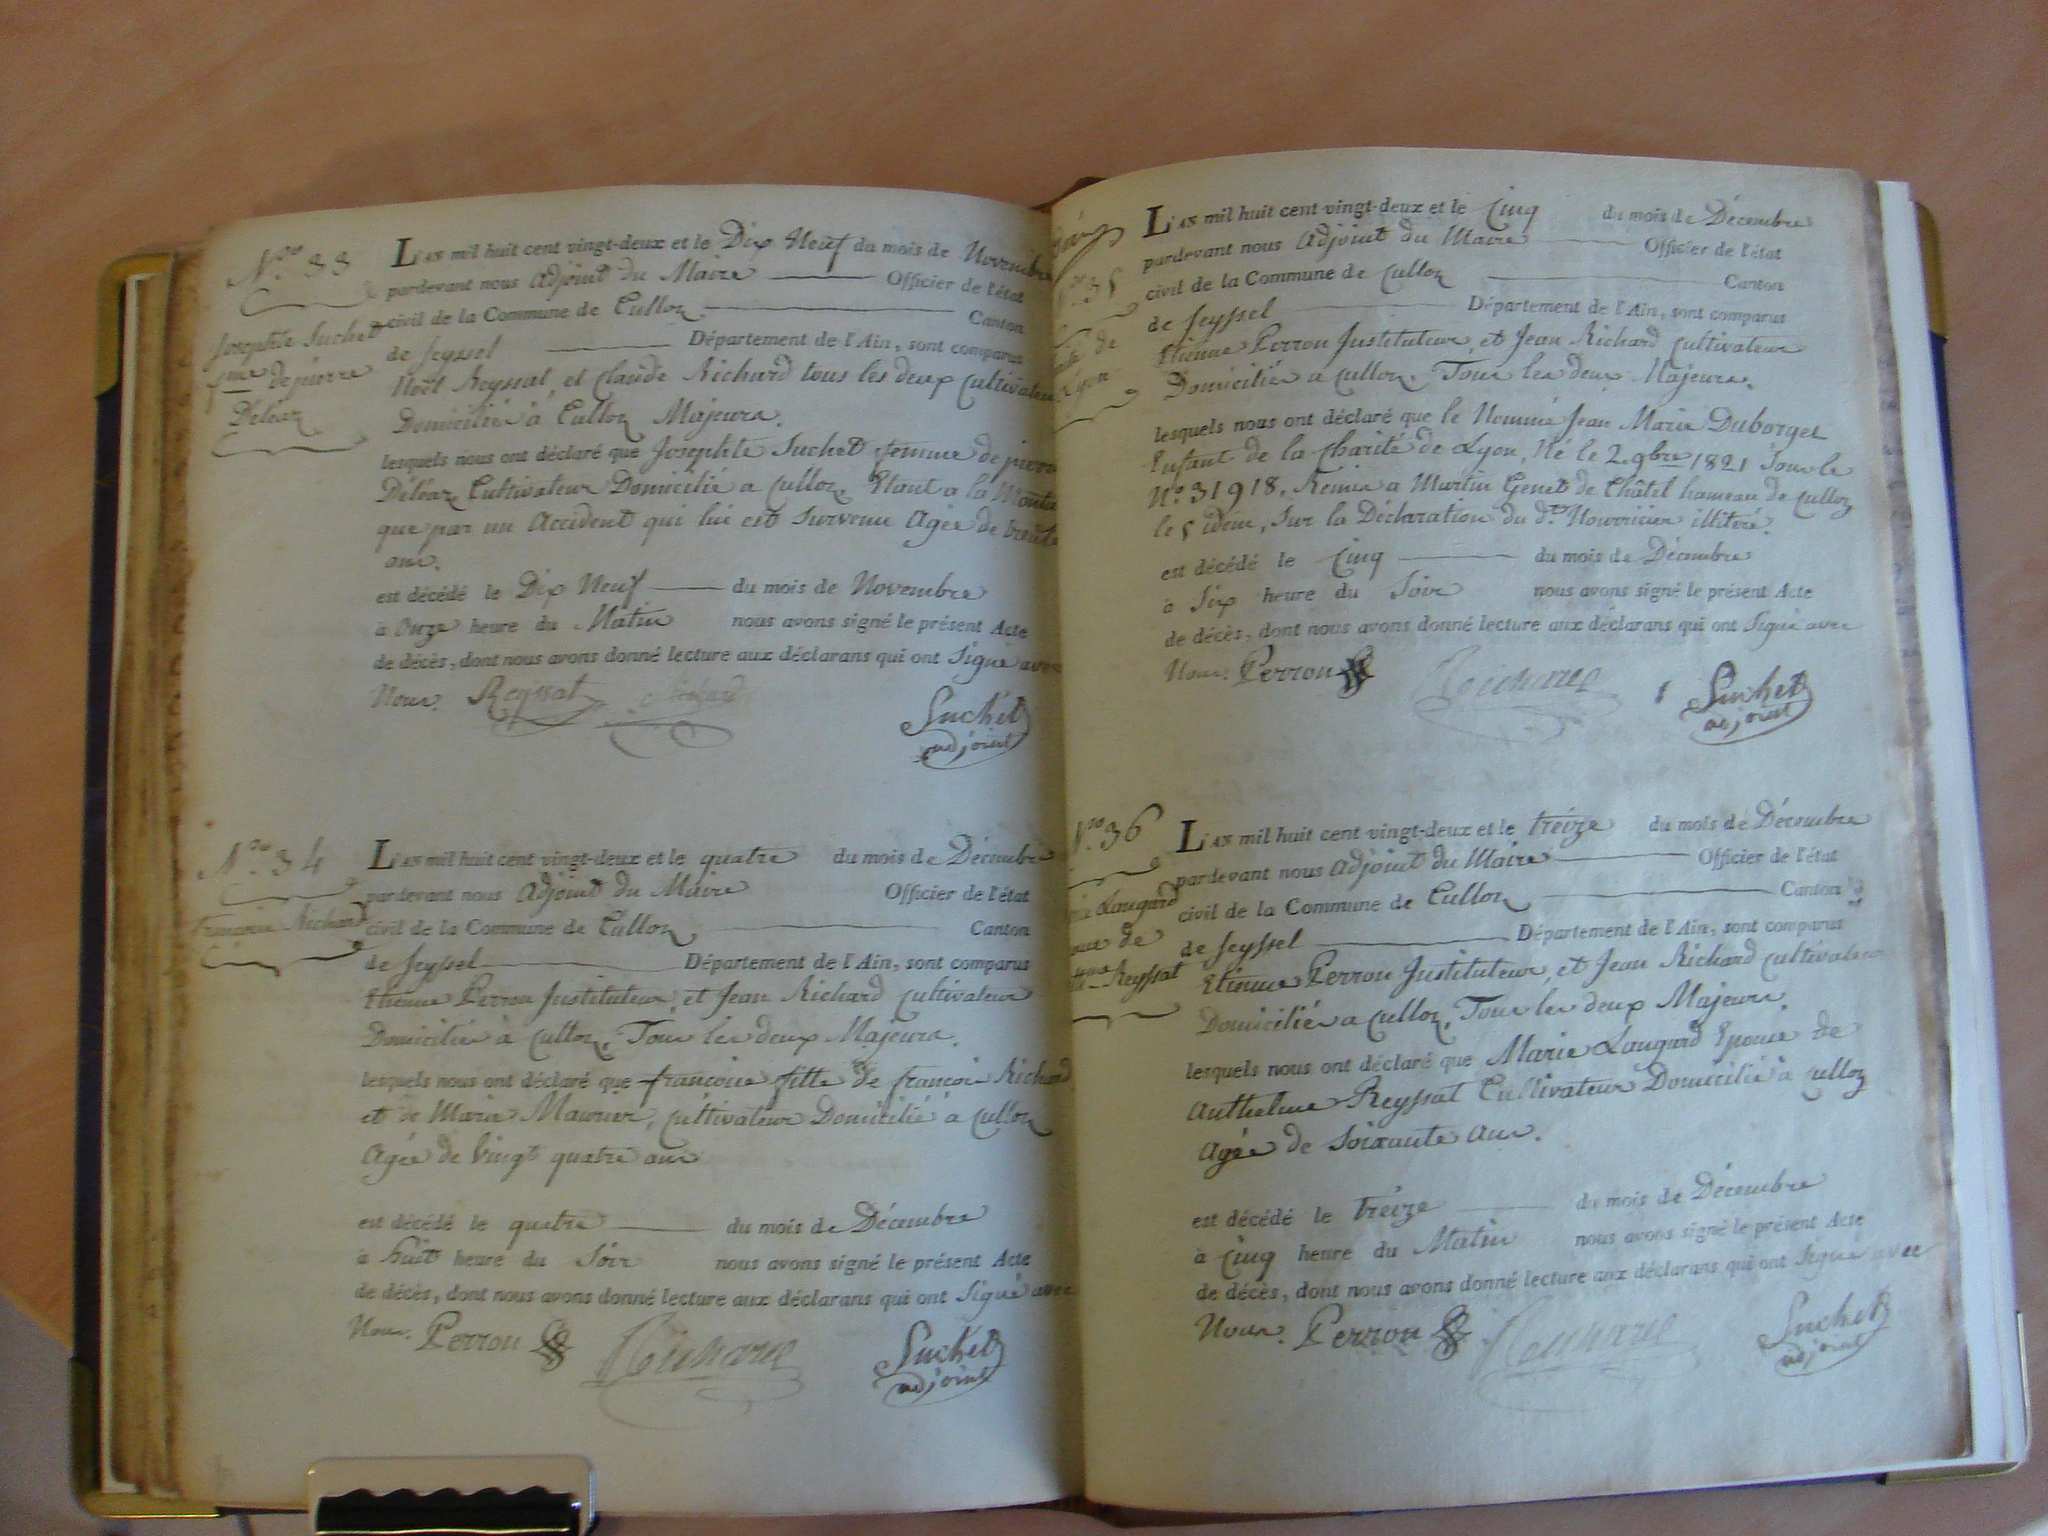 N.ro 33
Josephte Suchet
fme de pierre
Déléaz
L'AN mil huit cent vingt-deux et le Dix Neuf du mois de Novembre
pardevant nous Adjoint du Maire Officier de l'état
civil de la Commune de Culloz Canton
de Seyssel Département de l'Ain, sont comparus
Noël Reyssat, et Claude Richard tous les deux cultivateurs
Domiciliés à Culloz Majeurs.
lesquels nous ont déclaré que Josephte Suchet femme de pierre
Déléaz Cultivateur Domicilié a Culloz. Etant a la
que par un Accident qui lui est Survenu Agée de trente
ans.
est décédé le Dix Neuf du mois de Novembre
à Onze heure du Matin nous avons signé le présent Acte
de décès, dont nous avons donné lecture aux déclarans qui ont Signé avec
Nous. Reyssat Richard
Suchet
adjoint
N.ro 34
françoise Richard
L'AN mil huit cent vingt-deux et le quatre du mois de Décembre
pardevant nous Adjoint du Maire Officier de l'état
civil de la Commune de Culloz Canton
de Seyssel Département de l'Ain, sont comparus
Etienne Perrou Instituteur, et Jean Richard cultivateur
Domiciliés à Culloz, Tous les deux Majeurs.
lesquels nous ont déclaré que françoise fille de françois Richard
et de Marie Maurier, cultivateur Domicilié à Culloz
Agée de Vingt quatre ans
est décédé le quatre du mois de Décembre
à huit heure du Soir nous avons signé le présent Acte
de décès, dont nous avons donné lecture aux déclarans qui ont Signé avec
Nous. Perrou Richard Suchet
adjoint
35
de
Lyon
L'AN mil huit cent vingt-deux et le Cinq du mois de Décembre
pardevant nous Adjoint du Maire Officier de l'état
civil de la Commune de Culloz Canton
de Seyssel Département de l'Ain, sont comparus
Etienne Perrou Instituteur, et Jean Richard cultivateur
Domiciliés a Culloz. Tous les deux Majeurs.
lesquels nous ont déclaré que le Nommé Jean Marie Duborget
Enfant de la Charité de Lyon, Né le 2 9bre 1821 Sous le
N.o 31918. Remis a Martin Genet de Châtel hameau de Culloz
le 5 idem, Sur la Déclaration du dt Nourricier illitéré.
est décédé le Cinq du mois de Décembre
à Six heure du Soir nous avons signé le présent Acte
de décès, dont nous avons donné lecture aux déclarans qui ont Signé avec
Nous. Perrou Richard Suchet
adjoint
N.ro 36
Laugard
de
Reyssat
L'AN mil huit cent vingt-deux et le treize du mois de Décembre
pardevant nous Adjoint du Maire Officier de l'état
civil de la Commune de Culloz Canton
de Seyssel Département de l'Ain, sont comparus
Etienne Perrou Instituteur, et Jean Richard cultivateur
Domiciliés a Culloz, Tous les deux Majeurs.
lesquels nous ont déclaré que Marie Laugard Epouse de
Anthelme Reyssat Cultivateur Domicilié à Culloz
Agée de Soixante Ans.
est décédé le treize du mois de Décembre
à Cinq heure du Matin nous avons signé le présent Acte
de décès, dont nous avons donné lecture aux déclarans qui ont Signé avec
Nous. Perrou Richard Suchet
adjoint